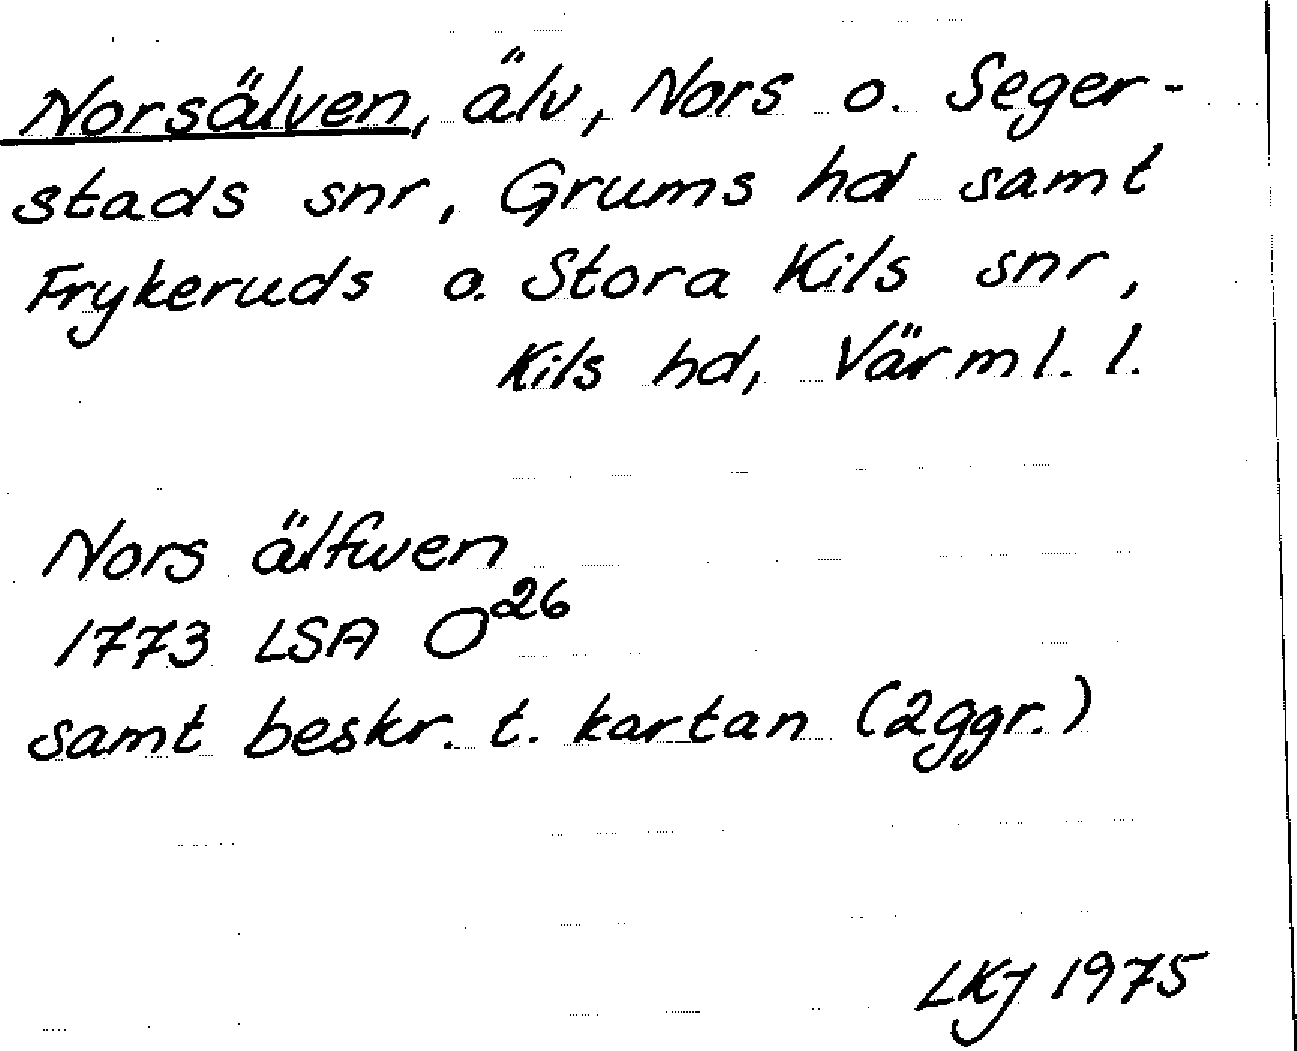 Norsälven, älv, Nors o. Seger-
stads snr, Grums hd samt
Frykeruds o. Stora Kils snr,
Kils hd, Värml. l.
Nors älfwen
1773 LSA O²⁶
samt beskr. t. kartan (2ggr.)
LKJ 1975